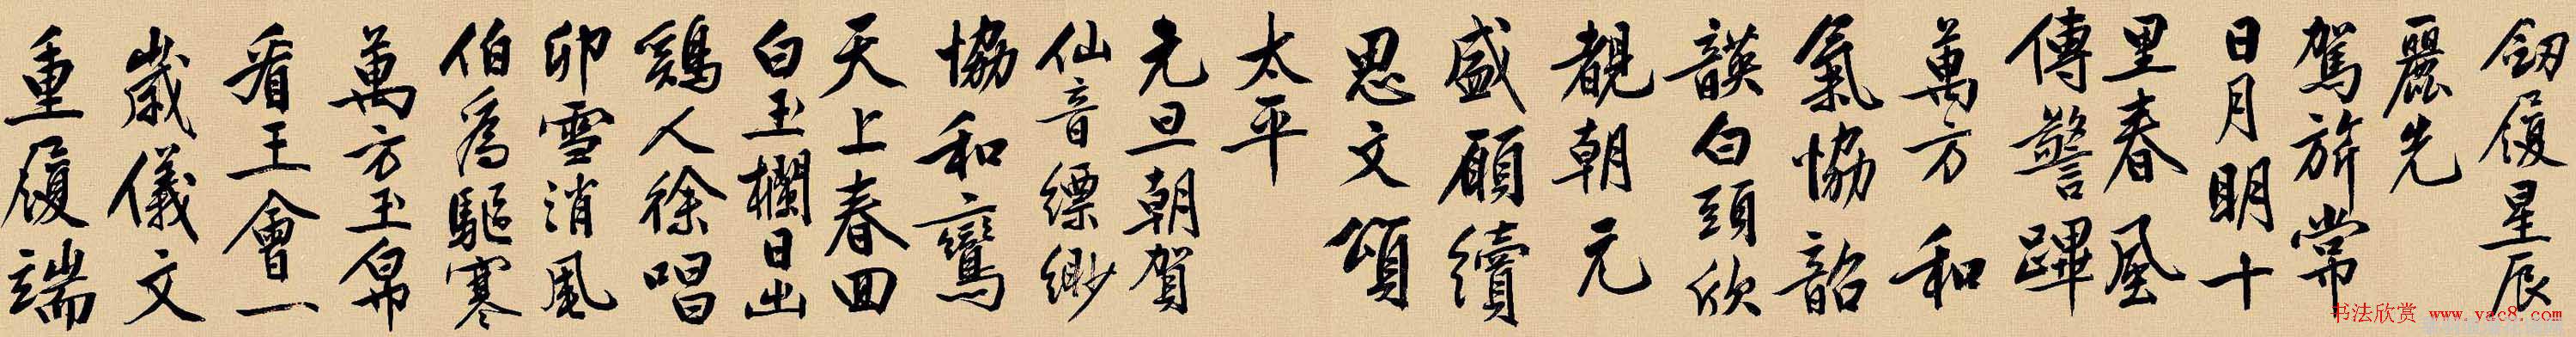 釼履星辰
麗先
駕旂常
日月明十
里春風
傳警蹕
萬方和
氣協韶
韺白頭欣
覩朝元
盛願續
思文頌
太平
元旦朝賀
仙音縹緲
協和鸞
天上春回
白玉欄日出
鷄人徐唱
卯雪消風
伯為驅寒
萬方玉帛
看王會一
歲儀文
重履端
书法欣赏 www.yac8.com